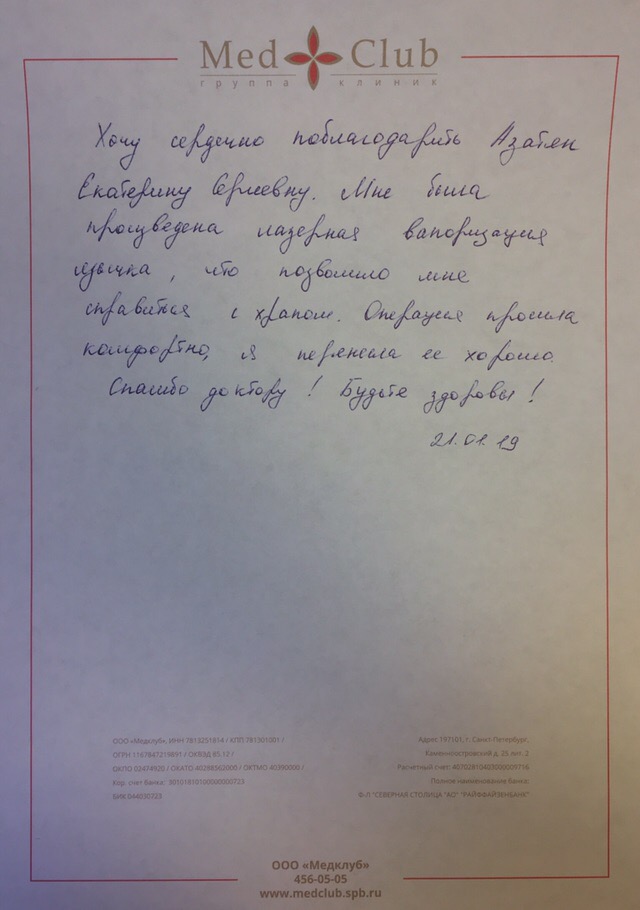 Med Club
группа клиник
Хочу сердечно поблагодарить Азатян
Екатерину Сергеевну. Мне была
произведена лазерная вапоризация
язычка, что позволило мне
справится с храпом. Операция прошла
комфортно, я перенесла ее хорошо.
Спасибо доктору! Будьте здоровы!
21.01.19
ООО «Медклуб», ИНН 7813251814 / КПП 781301001 /
ОГРН 1167847219891 / ОКВЭД 85.12 /
ОКПО 02474920 / ОКАТО 40288562000 / ОКТМО 40390000 /
Кор. счет банка: 30101810100000000723
БИК 044030723
Адрес 197101, г. Санкт-Петербург,
Каменноостровский д. 25 лит. 2
Расчетный счет: 40702810403000009716
Полное наименование банка:
Ф-Л "СЕВЕРНАЯ СТОЛИЦА "АО" "РАЙФФАЙЗЕНБАНК"
ООО «Медклуб»
456-05-05
www.medclub.spb.ru